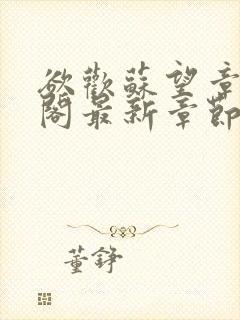 欲歡蘇望章
閣最新章節
董錚